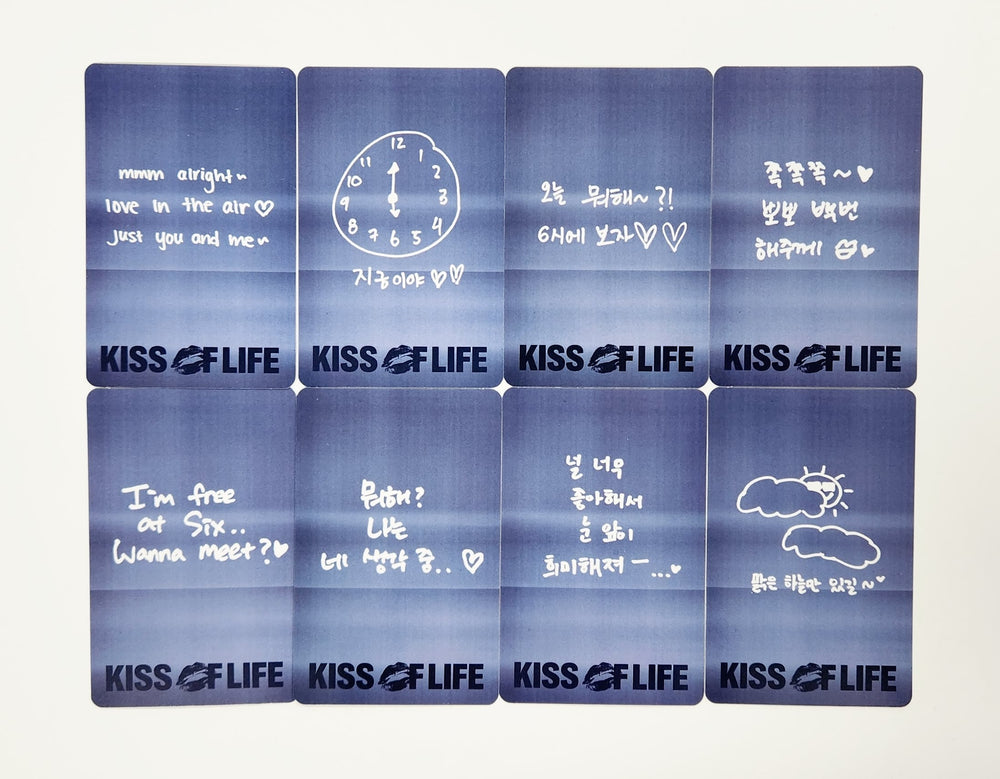 mmm alright~
love in the air♡
just you and me~
KISS OF LIFE
12
1
2
3
4
5
6
7
8
9
10
11
지금이야 ♡♡
KISS OF LIFE
오늘 뭐해~?!
6시에 보자♡♡
KISS OF LIFE
쪽쪽쪽~♥
뽀뽀 백번
해주께 ♥
KISS OF LIFE
I'm free
at Six..
Wanna meet?♥
KISS OF LIFE
뭐해?
나는
네 생각 중.. ♡
KISS OF LIFE
널 너무
좋아해서
눈 앞이
희미해져 ㅡ...♥
KISS OF LIFE
맑은 하늘만 있길~♥
KISS OF LIFE